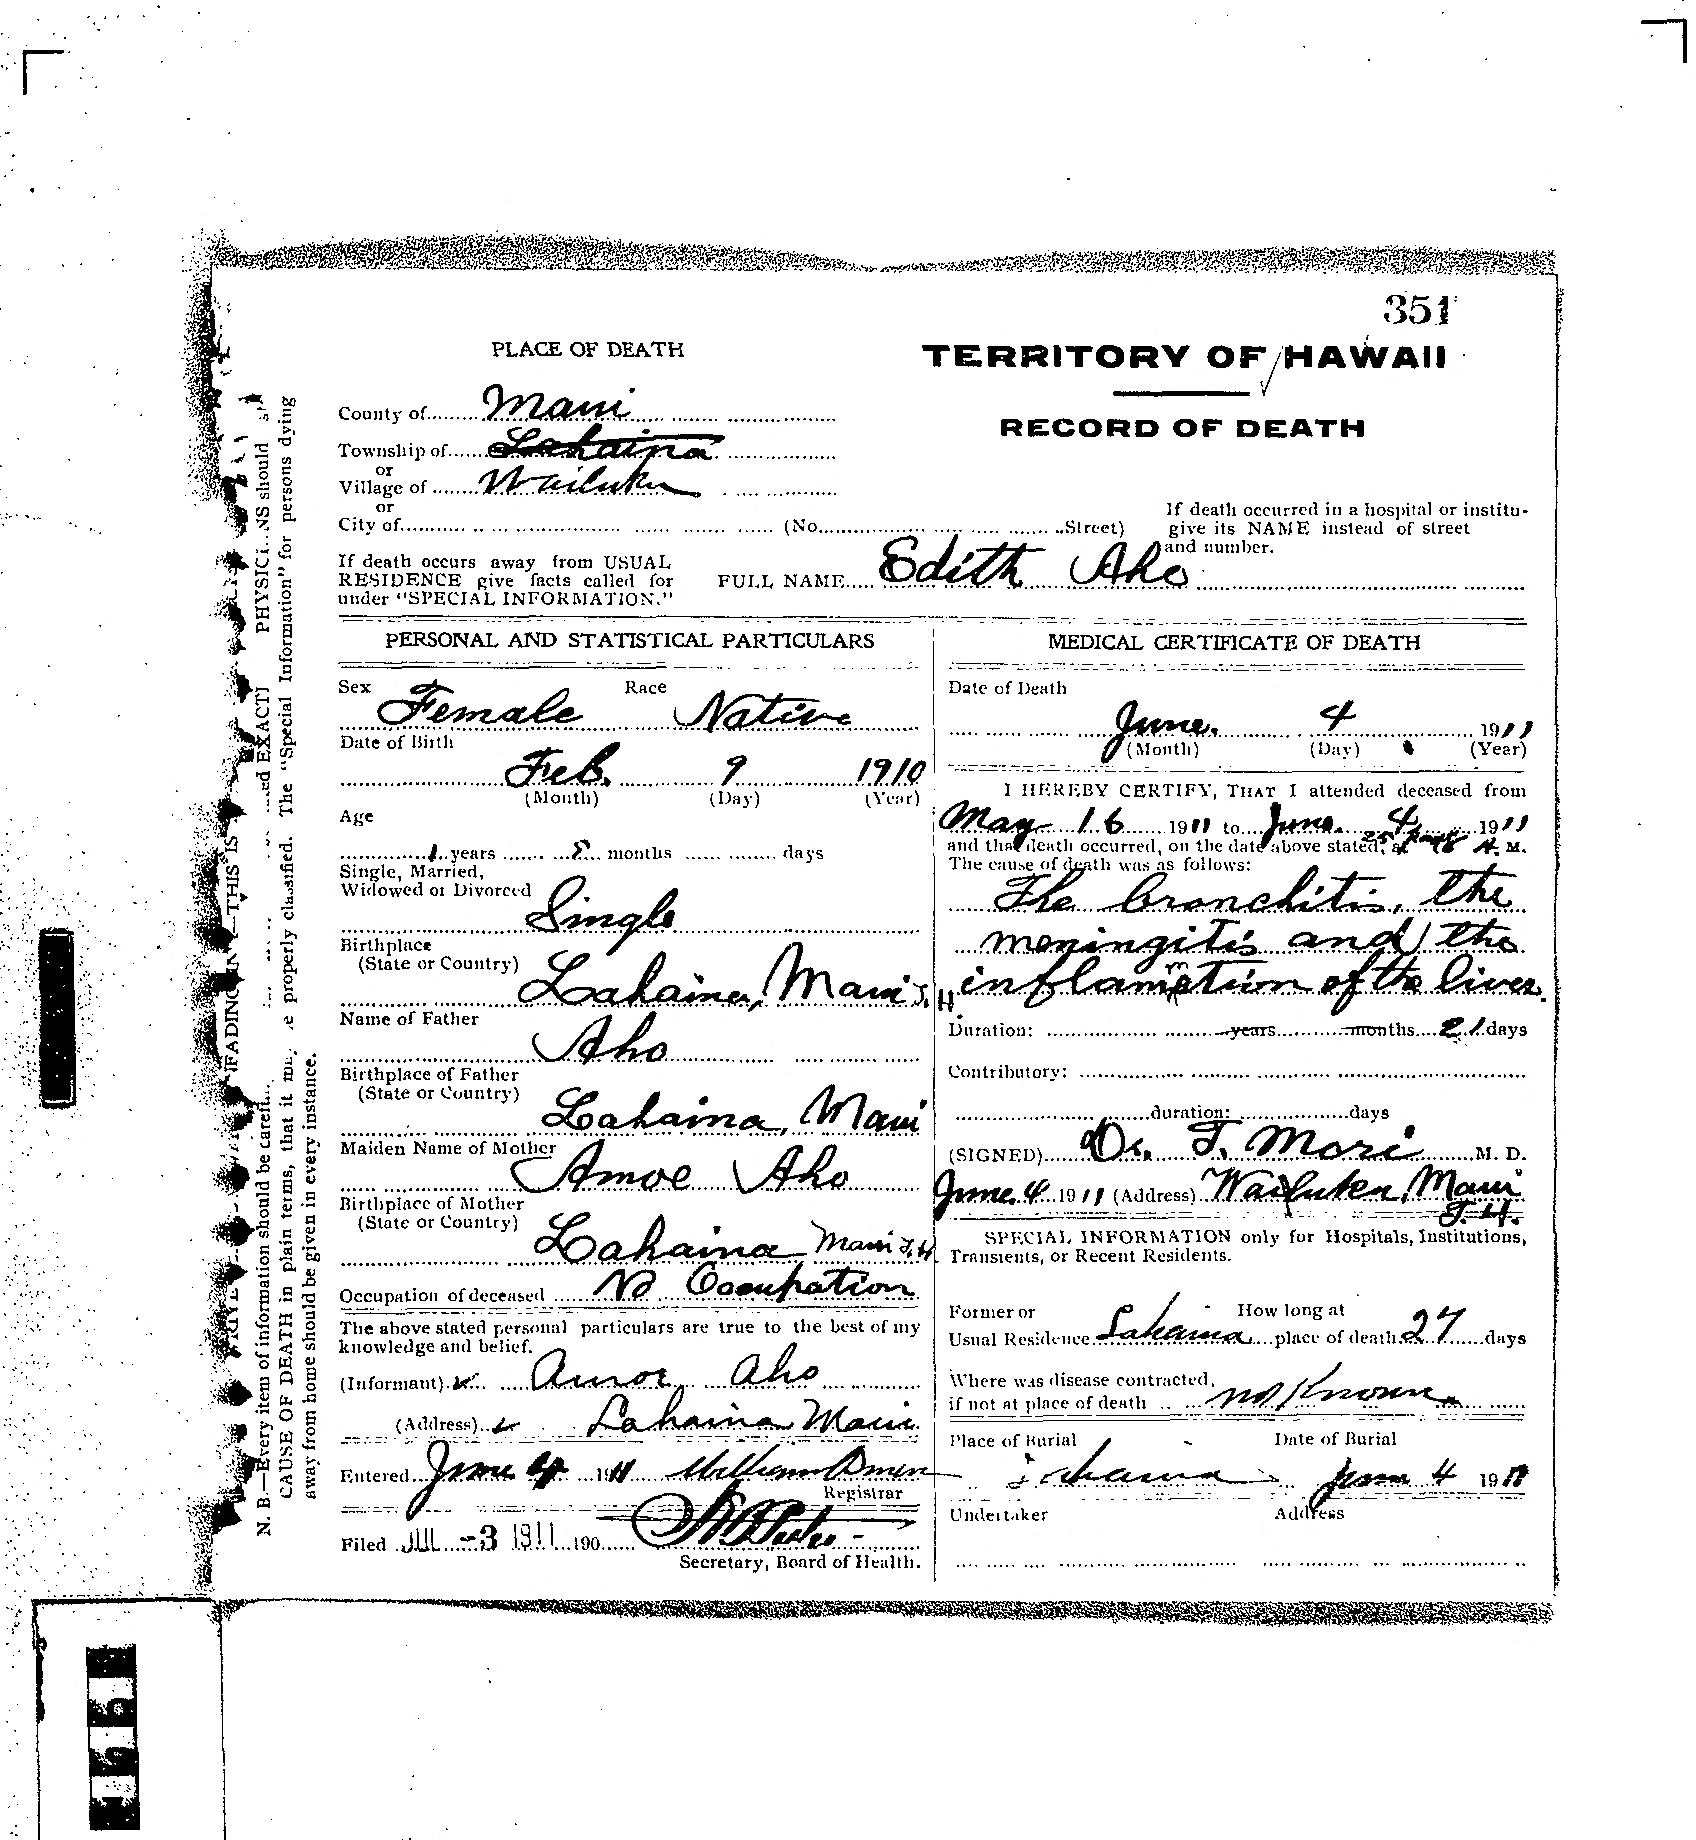 351
PLACE OF DEATH
TERRITORY OF HAWAII
RECORD OF DEATH
County of Maui
Township of Lahaina
or
Village of Wailuku
or
City of (No. Street)
If death occurred in a hospital or institu-
give its NAME instead of street
and number.
If death occurs away from USUAL
RESIDENCE give facts called for
under "SPECIAL INFORMATION."
FULL NAME Edith Aho
PERSONAL AND STATISTICAL PARTICULARS
Sex Race
Female Native
Date of Birth
Feb. 9 1910
(Month) (Day) (Year)
Age
1 years months days
Single, Married,
Widowed or Divorced
Single
Birthplace
(State or Country)
Lahaina, Maui T.H.
Name of Father
Aho
Birthplace of Father
(State or Country)
Lahaina, Maui
Maiden Name of Mother
Amoe Aho
Birthplace of Mother
(State or Country)
Lahaina Maui T.H.
Occupation of deceased No Occupation
The above stated personal particulars are true to the best of my
knowledge and belief.
(Informant) Amoe Aho
(Address) Lahaina Maui
Entered June 4 1911 William
Registrar
Filed JUL -3 1911 190
Secretary, Board of Health.
MEDICAL CERTIFICATE OF DEATH
Date of Death
June. 4 1911
(Month) (Day) (Year)
I HEREBY CERTIFY, THAT I attended deceased from
May 16 1911 to June. 4 1911
and that death occurred, on the date above stated, at A. M.
The cause of death was as follows:
The bronchitis, the
meningitis and the
inflammation of the liver.
Duration: years months 21 days
Contributory:
duration: days
(SIGNED) Dr. T. Mori M. D.
June. 4 1911 (Address) Wailuku, Maui
T. H.
SPECIAL INFORMATION only for Hospitals, Institutions,
Transients, or Recent Residents.
Former or How long at
Usual Residence Lahaina place of death 27 days
Where was disease contracted,
if not at place of death not known.
Place of Burial Date of Burial
Lahaina June 4 1911
Undertaker Address
N. B.—Every item of information should be
CAUSE OF DEATH in plain terms, that it properly classified. The "Special Information" for persons dying
away from home should be given in every instance.
FADING THIS IS
EXACT should